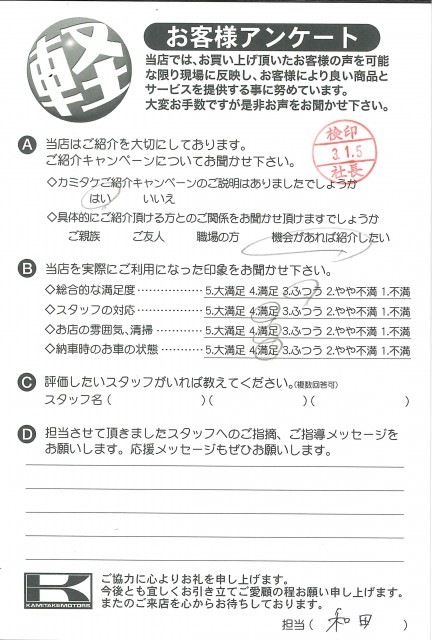 軽
お客様アンケート
当店では、お買い上げ頂いたお客様の声を可能
な限り現場に反映し、お客様により良い商品と
サービスを提供する事に努めています。
大変お手数ですが是非お声をお聞かせ下さい。
検印
3.1.5
社長
A 当店はご紹介を大切にしております。
ご紹介キャンペーンについてお聞かせ下さい。
◇カミタケご紹介キャンペーンのご説明はありましたでしょうか
はい いいえ
◇具体的にご紹介頂ける方とのご関係をお聞かせ頂けますでしょうか
ご親族 ご友人 職場の方 機会があれば紹介したい
B 当店を実際にご利用になった印象をお聞かせ下さい。
◇総合的な満足度……………5.大満足 4.満足 3.ふつう 2.やや不満 1.不満
◇スタッフの対応……………5.大満足 4.満足 3.ふつう 2.やや不満 1.不満
◇お店の雰囲気、清掃………5.大満足 4.満足 3.ふつう 2.やや不満 1.不満
◇納車時のお車の状態………5.大満足 4.満足 3.ふつう 2.やや不満 1.不満
C 評価したいスタッフがいれば教えてください。(複数回答可)
スタッフ名( )( )( )
D 担当させて頂きましたスタッフへのご指摘、ご指導メッセージを
お願いします。応援メッセージもぜひお願いします。
K
KAMITAKEMOTORS
ご協力に心よりお礼を申し上げます。
今後とも宜しくお引き立てご愛顧の程お願い申し上げます。
またのご来店を心からお待ちしております。
担当( 和田 )